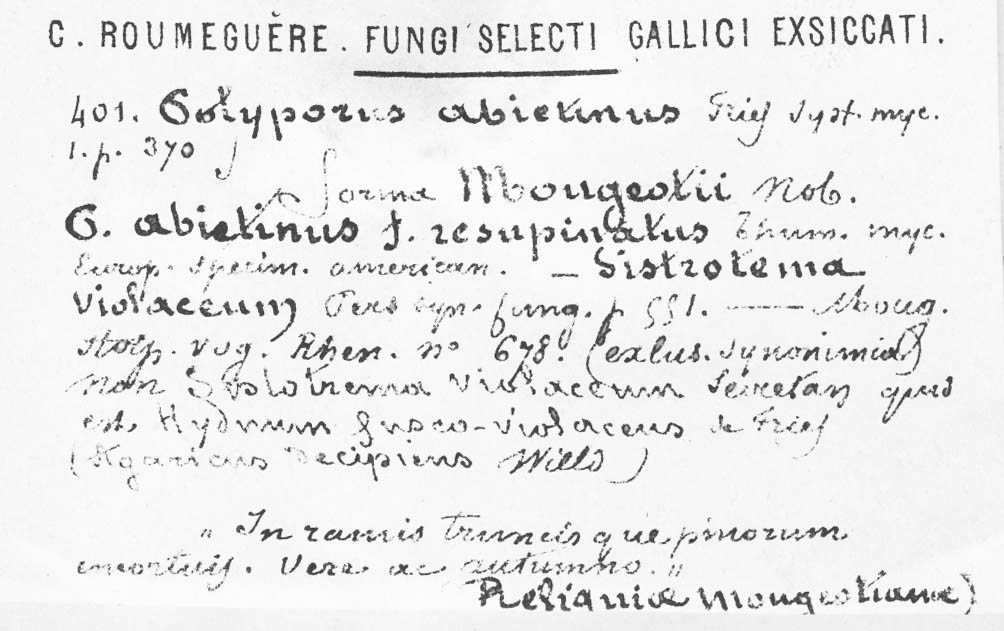 C. ROUMEGUÈRE. FUNGI SELECTI GALLICI EXSICCATI.
401. Polyporus abietinus Fries Syst. myc.
1. p. 370
forma Mougeotii Nob.
P. abietinus f. resupinatus Thum. myc.
Europ. specim. american. — Sistrotema
violaceum Pers syn. fung. p 551. — Moug.
Stirp. vog. Rhen. no 678. (exlus. synonimia)
non Sistotrema violaceum Secretan quid
est Hydnum fusco-violaceus de Fries
(Agaricus decipiens Willd)
„ In ramis truncisque pinorum
emortuis. Vere ac autumno. „
Reliquiæ Mougeotianæ)